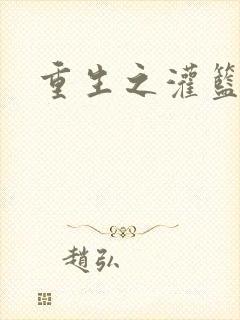 重生之灌籃
趙弘